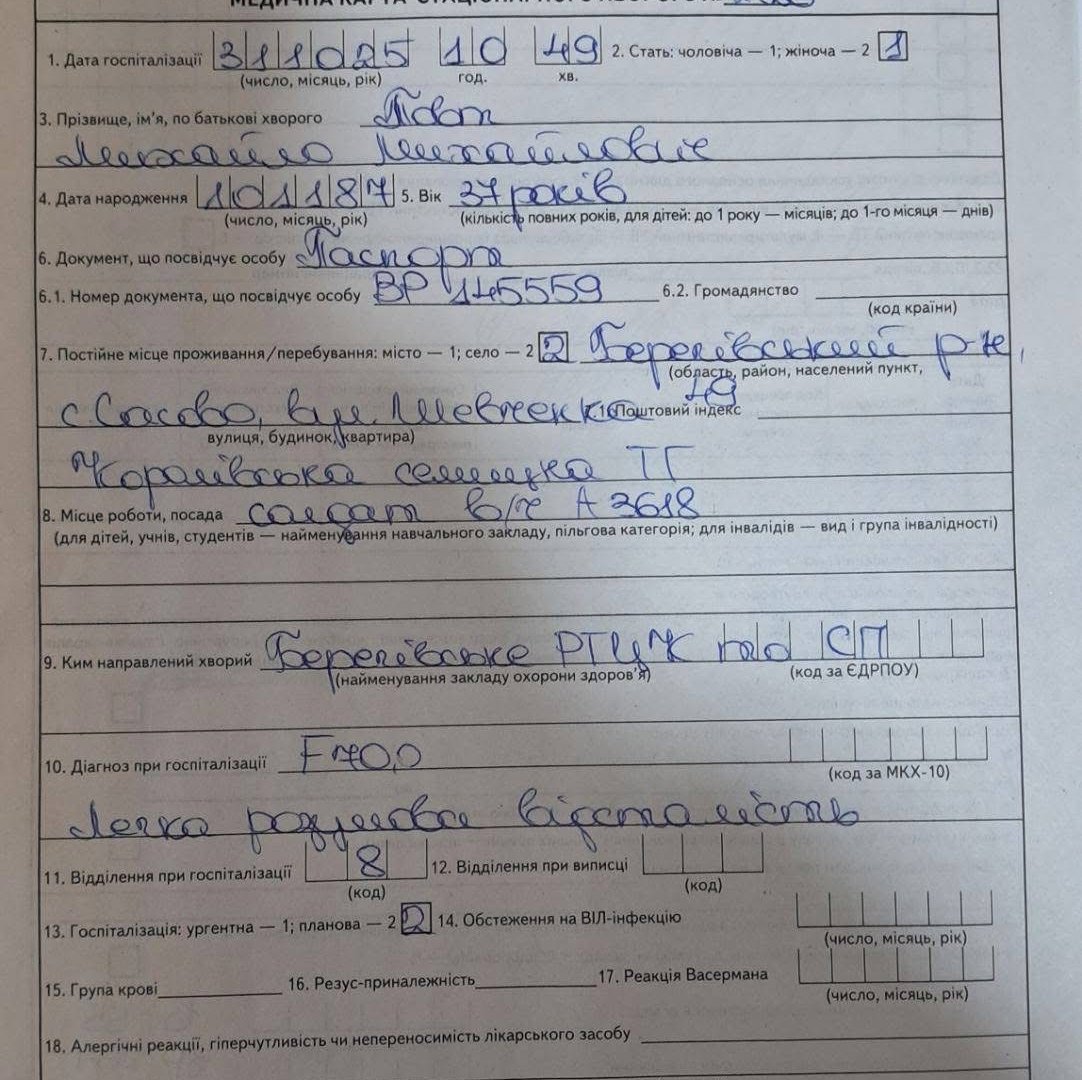 МЕДИЧНА КАРТА СТАЦІОНАРНОГО ХВОРОГО
1. Дата госпіталізації 311025 10 49 2. Стать: чоловіча — 1; жіноча — 2 1
(число, місяць, рік) год. хв.
3. Прізвище, ім'я, по батькові хворого
Михайло Михайлович
4. Дата народження 101187 5. Вік 37 років
(число, місяць, рік) (кількість повних років, для дітей: до 1 року — місяців; до 1-го місяця — днів)
6. Документ, що посвідчує особу Паспорт
6.1. Номер документа, що посвідчує особу ВР 145559 6.2. Громадянство
(код країни)
7. Постійне місце проживання/перебування: місто — 1; село — 2 2 Берегівський р-н,
(область, район, населений пункт,
с. Сасово, вул. Шевченка 49 Поштовий індекс
вулиця, будинок, квартира)
Королівська селищна ТГ
8. Місце роботи, посада солдат в/ч А 3618
(для дітей, учнів, студентів — найменування навчального закладу, пільгова категорія; для інвалідів — вид і група інвалідності)
9. Ким направлений хворий Берегівське РТЦК та СП
(найменування закладу охорони здоров'я) (код за ЄДРПОУ)
10. Діагноз при госпіталізації F70,0
(код за МКХ-10)
Легка розумова відсталість
11. Відділення при госпіталізації 8 12. Відділення при виписці
(код) (код)
13. Госпіталізація: ургентна — 1; планова — 2 2 14. Обстеження на ВІЛ-інфекцію
(число, місяць, рік)
15. Група крові 16. Резус-приналежність 17. Реакція Васермана
(число, місяць, рік)
18. Алергічні реакції, гіперчутливість чи непереносимість лікарського засобу